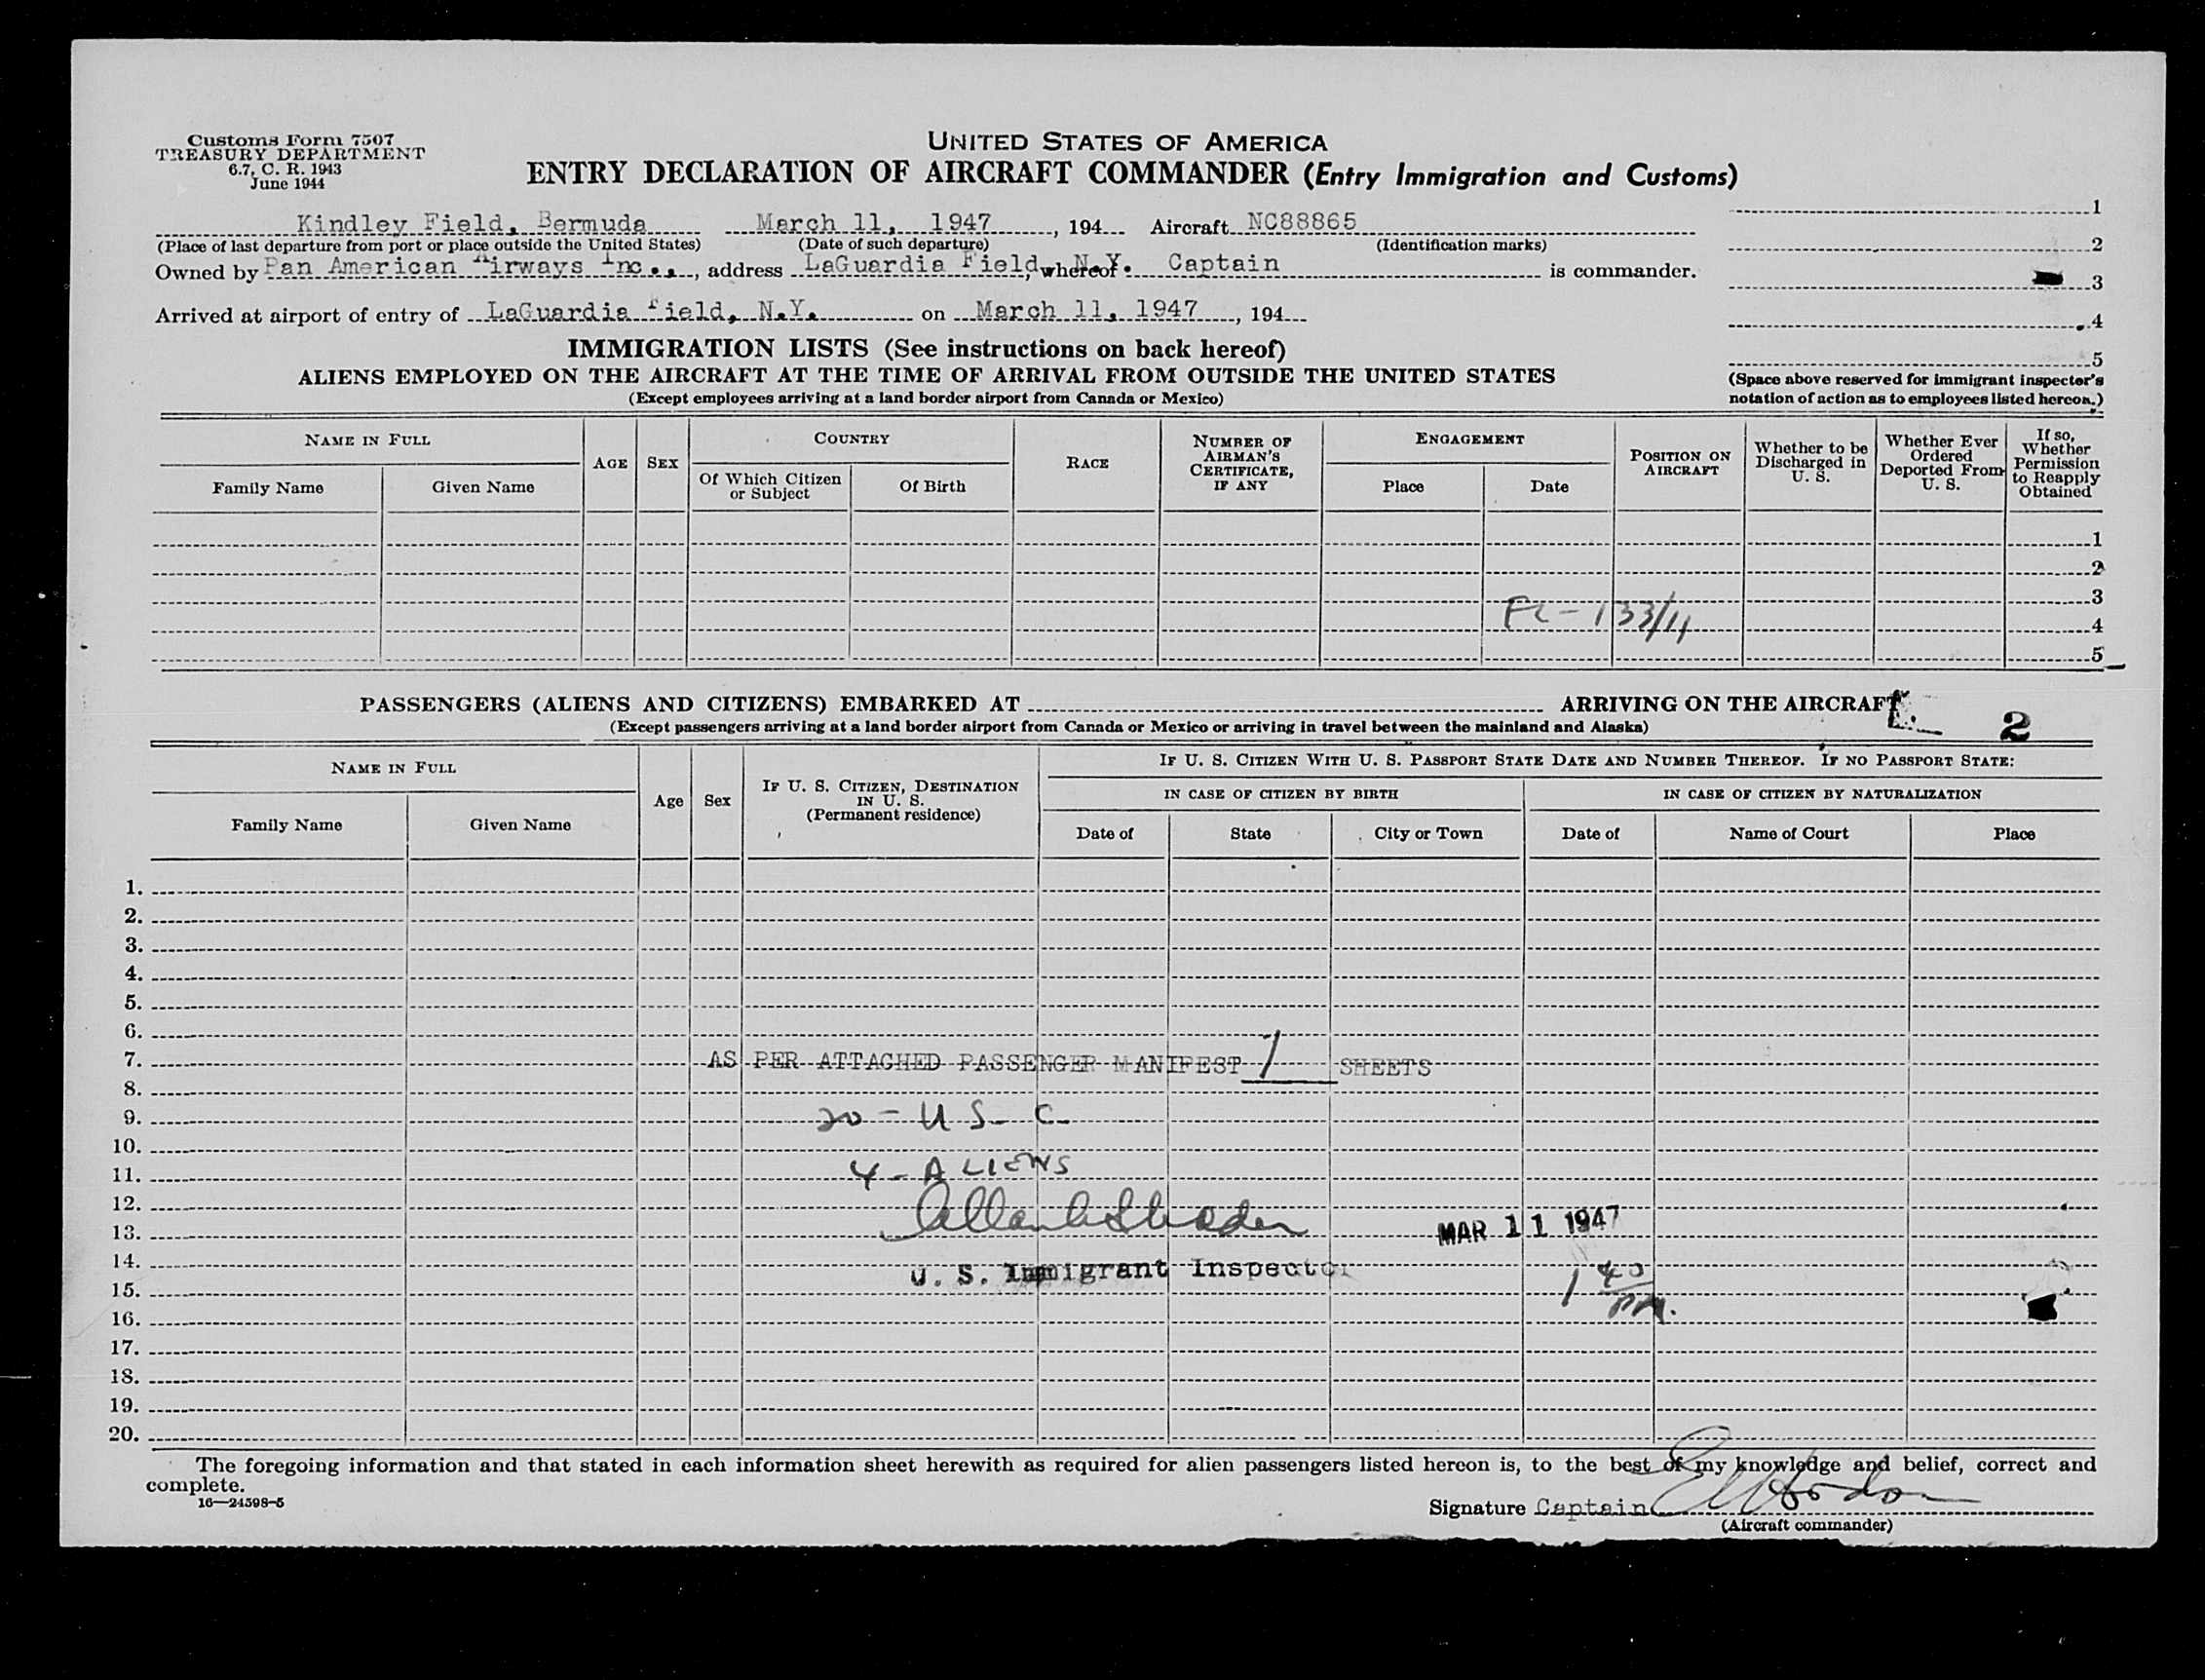 Customs Form 7507
TREASURY DEPARTMENT
6.7, C. R. 1943
June 1944
UNITED STATES OF AMERICA
ENTRY DECLARATION OF AIRCRAFT COMMANDER (Entry Immigration and Customs)
Kindley Field, Bermuda March 11, 1947, 194 Aircraft NC88865
(Place of last departure from port or place outside the United States) (Date of such departure) (Identification marks)
Owned by Pan American Airways Inc., address LaGuardia Field, N.Y. whereof Captain is commander.
Arrived at airport of entry of LaGuardia Field, N.Y. on March 11, 1947, 194
1
2
3
4
5
(Space above reserved for immigrant inspector's
notation of action as to employees listed hereon.)
IMMIGRATION LISTS (See instructions on back hereof)
ALIENS EMPLOYED ON THE AIRCRAFT AT THE TIME OF ARRIVAL FROM OUTSIDE THE UNITED STATES
(Except employees arriving at a land border airport from Canada or Mexico)
NAME IN FULL
Family Name Given Name
AGE SEX
COUNTRY
Of Which Citizen
or Subject
Of Birth
RACE
NUMBER OF
AIRMAN'S
CERTIFICATE,
IF ANY
ENGAGEMENT
Place Date
POSITION ON
AIRCRAFT
Whether to be
Discharged in
U. S.
Whether Ever
Ordered
Deported From
U. S.
If so,
Whether
Permission
to Reapply
Obtained
1
2
3
FL-133/11
4
5
PASSENGERS (ALIENS AND CITIZENS) EMBARKED AT ARRIVING ON THE AIRCRAFT
(Except passengers arriving at a land border airport from Canada or Mexico or arriving in travel between the mainland and Alaska)
2
NAME IN FULL
Family Name Given Name
Age Sex
IF U. S. CITIZEN, DESTINATION
IN U. S.
(Permanent residence)
IF U. S. CITIZEN WITH U. S. PASSPORT STATE DATE AND NUMBER THEREOF. IF NO PASSPORT STATE:
IN CASE OF CITIZEN BY BIRTH IN CASE OF CITIZEN BY NATURALIZATION
Date of State City or Town Date of Name of Court Place
1.
2.
3.
4.
5.
6.
7. AS PER ATTACHED PASSENGER MANIFEST 1 SHEETS
8.
9. 20 - U S C
10.
11. 4 - ALIENS
12.
13. MAR 11 1947
14. U. S. Immigrant Inspector
15. 1 40 PM.
16.
17.
18.
19.
20.
The foregoing information and that stated in each information sheet herewith as required for alien passengers listed hereon is, to the best of my knowledge and belief, correct and
complete.
16—24598-5
Signature Captain
(Aircraft commander)